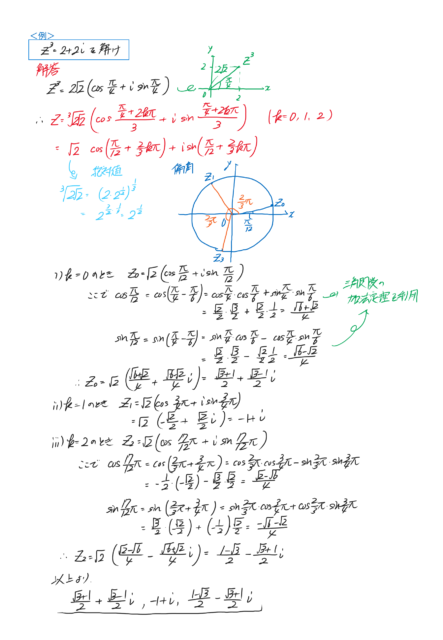 <例>
z³=2+2i を解け
解答
z³=2√2(cos π/4 + i sin π/4)
∴ z=³√(2√2)(cos (π/4+2kπ)/3 + i sin (π/4+2kπ)/3) (k=0, 1, 2)
=√2 cos(π/12 + 2/3kπ)+i sin(π/12 + 2/3kπ)
絶対値
偏角
y
2
2√2
z³
π/4
0
2
x
³√(2√2) = (2·2^(1/2))^(1/3)
= 2^(1/3)
y
z₁
z₀
2/3π
2/3π
0
π/12
x
z₂
i) k=0のとき z₀=√2(cos π/12 + i sin π/12)
ここで cos π/12 = cos(π/4 - π/6)=cos π/4 cos π/6 + sin π/4 sin π/6
= √2/2 · √3/2 + √2/2 · 1/2 = (√6+√2)/4
三角関数の
加法定理を利用
sin π/12 = sin(π/4 - π/6)= sin π/4 cos π/6 - cos π/4 sin π/6
= √2/2 · √3/2 - √2/2 · 1/2 = (√6-√2)/4
∴ z₀=√2((√6+√2)/4 + (√6-√2)/4 i)= (√3+1)/2 + (√3-1)/2 i
ii) k=1のとき z₁=√2(cos 3/4π + i sin 3/4π)
=√2(-√2/2 + √2/2 i)= -1+i
iii) k=2のとき z₂=√2(cos 17/12π + i sin 17/12π)
ここで cos 17/12π = cos(2/3π+3/4π)= cos 2/3π·cos 3/4π - sin 2/3π·sin 3/4π
= -1/2·(-√2/2) - √3/2·√2/2 = (√2-√6)/4
sin 17/12π = sin(2/3π+3/4π)= sin 2/3π cos 3/4π + cos 2/3π sin 3/4π
= √3/2·(-√2/2)+(-1/2)√2/2 = (-√6-√2)/4
∴ z₂=√2((√2-√6)/4 - (√6+√2)/4 i)= (1-√3)/2 - (√3+1)/2 i
以上より
(√3+1)/2 + (√3-1)/2 i , -1+i, (1-√3)/2 - (√3+1)/2 i